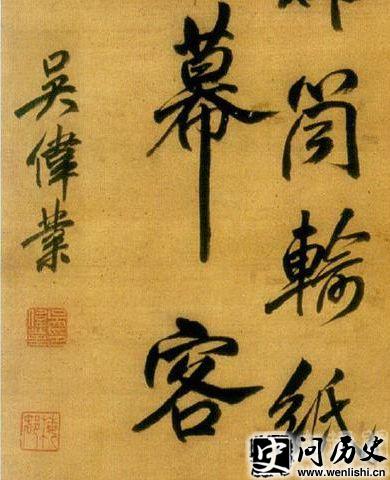 筒輸紙
幕客
吳偉業
梅村
问历史
www.wenlishi.cn